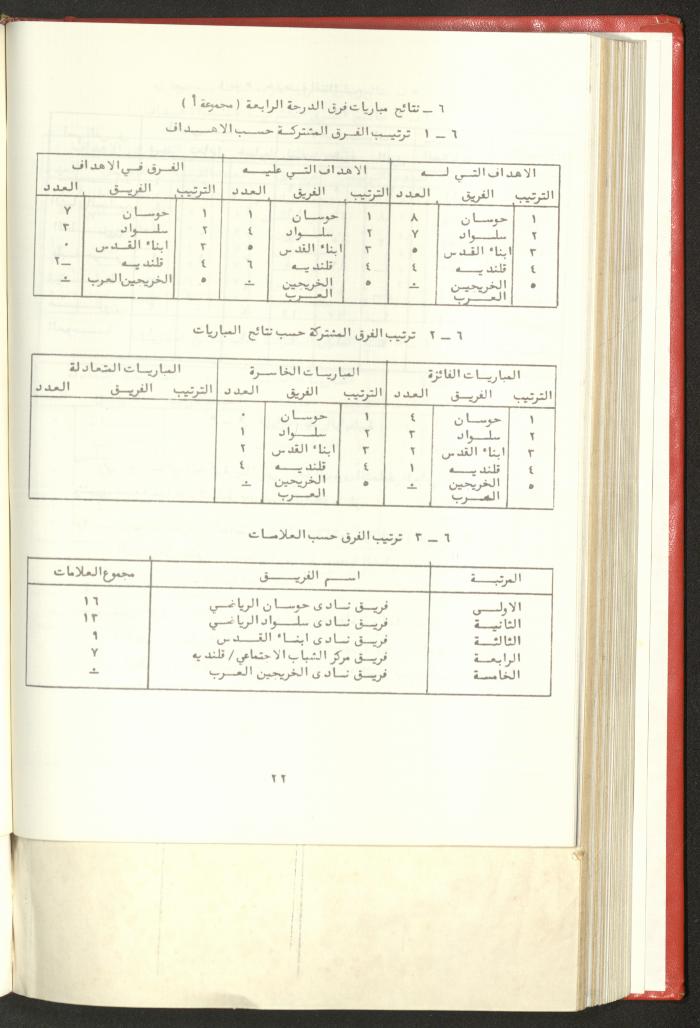 ٦ ــ نتائج مباريات فرق الدرجة الرابعة ( مجموعة أ )
٦ ــ ١ ترتيب الفرق المشتركة حسب الاهداف
الاهداف التي له الاهداف التي عليه الفرق في الاهداف
الترتيب الفريق العدد الترتيب الفريق العدد الترتيب الفريق العدد
١ حوسان ٨ ١ حوسان ١ ١ حوسان ٧
٢ سلواد ٧ ٢ سلواد ٤ ٢ سلواد ٣
٣ ابناء القدس ٥ ٣ ابناء القدس ٥ ٣ ابناء القدس ٠
٤ قلنديه ٤ ٤ قلنديه ٦ ٤ قلنديه ــ٢
٥ الخريجين ٥ الخريجين ٥ الخريجين العرب
العرب العرب
٦ ــ ٢ ترتيب الفرق المشتركة حسب نتائج المباريات
المباريات الفائزة المباريات الخاسرة المباريات المتعادلة
الترتيب الفريق العدد الترتيب الفريق العدد الترتيب الفريق العدد
١ حوسان ٤ ١ حوسان ٠
٢ سلواد ٣ ٢ سلواد ١
٣ ابناء القدس ٢ ٣ ابناء القدس ٢
٤ قلنديه ١ ٤ قلنديه ٤
٥ الخريجين ٥ الخريجين
العرب العرب
٦ ــ ٣ ترتيب الفرق حسب العلامات
المرتبة اسم الفريق مجموع العلامات
الاولى فريق نادى حوسان الرياضي ١٦
الثانية فريق نادى سلواد الرياضي ١٣
الثالثة فريق نادى ابناء القدس ٩
الرابعة فريق مركز الشباب الاجتماعي / قلنديه ٧
الخامسة فريق نادى الخريجين العرب
٢٢